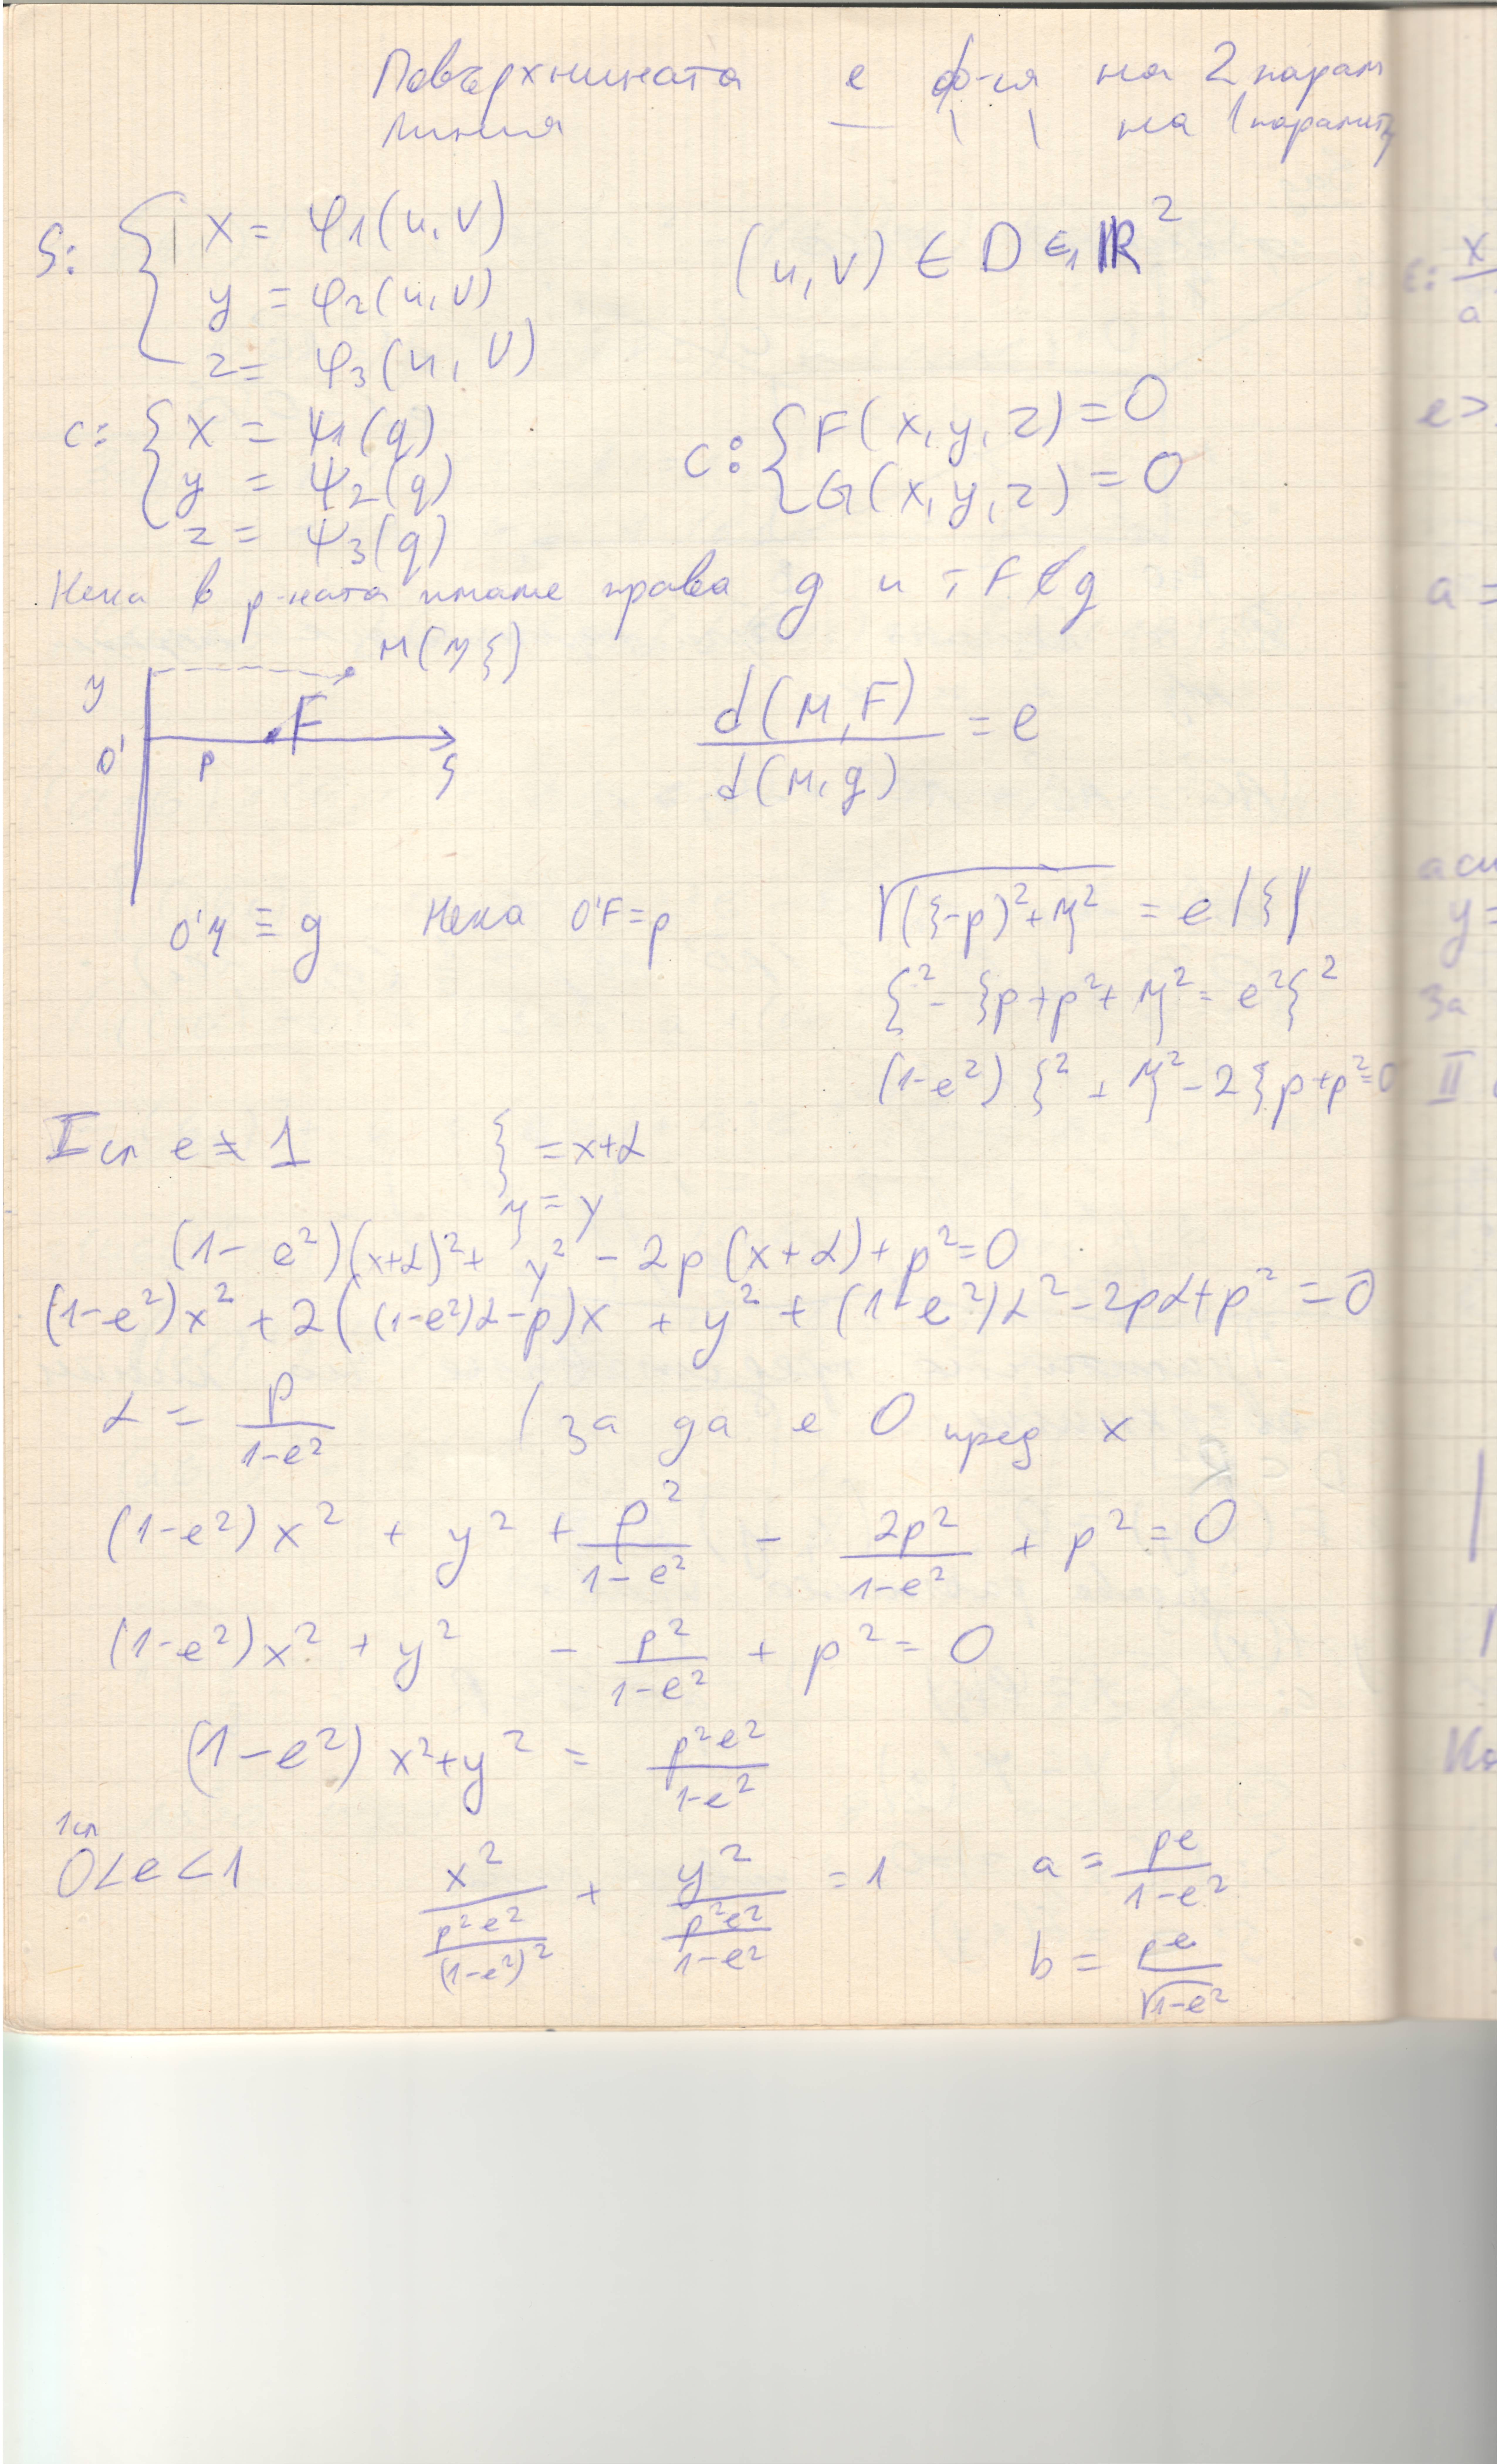 Повърхнината е ф-ия на 2 парам
линия — \ \ на 1 параметър
S: { x = φ1(u, v)
y = φ2(u, v)
z = φ3(u, v)
(u, v) ∈ D ∈ ℝ²
c: { x = ψ1(q)
y = ψ2(q)
z = ψ3(q)
c: { F(x, y, z) = 0
G(x, y, z) = 0
Нека в р-ната имаме права g и т F ∉ g
M(η ξ)
η
F
O' p ξ
d(M, F) / d(M, g) = e
O'η ≡ g Нека O'F = p
√((ξ-p)² + η²) = e|ξ|
ξ² - ξp + p² + η² = e²ξ²
(1-e²)ξ² + η² - 2ξp + p² = 0
I сл e ≠ 1
ξ = x+α
η = y
(1-e²)(x+α)² + y² - 2p(x+α) + p² = 0
(1-e²)x² + 2((1-e²)α-p)x + y² + (1-e²)α² - 2pα + p² = 0
α = p/(1-e²) / за да е 0 пред x
(1-e²)x² + y² + p²/(1-e²) - 2p²/(1-e²) + p² = 0
(1-e²)x² + y² - p²/(1-e²) + p² = 0
(1-e²)x² + y² = p²e²/(1-e²)
1сл
0<e<1
x²/(p²e²/(1-e²)²) + y²/(p²e²/(1-e²)) = 1
a = pe/(1-e²)
b = pe/√(1-e²)
x
a
e>
a =
y =
За
II